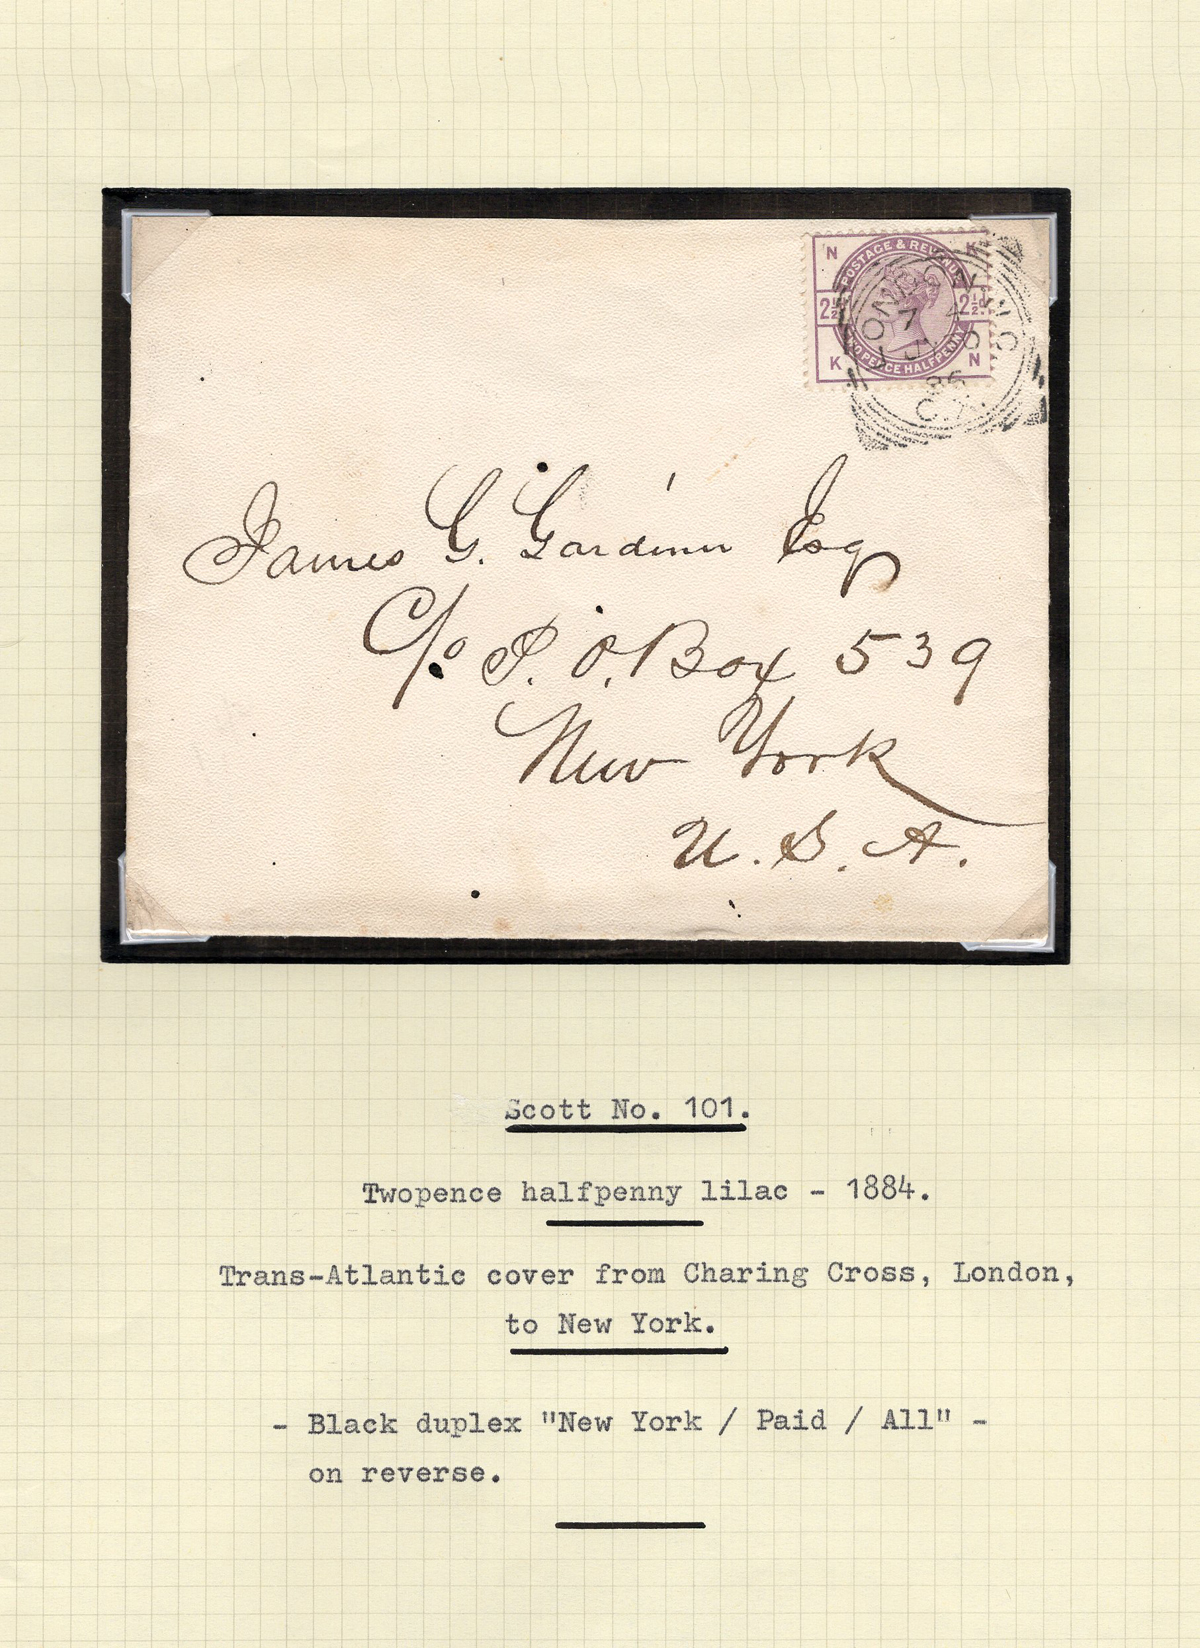 N
K
POSTAGE & REVENUE
2½
2½
TWO PENCE HALFPENNY
K
N
LONDON
7
86
C.X.
James G. Gardiner Esq
C/o P. O. Box 539
New York
U. S. A.
Scott No. 101.
Twopence halfpenny lilac - 1884.
Trans-Atlantic cover from Charing Cross, London,
to New York.
- Black duplex "New York / Paid / All" -
on reverse.